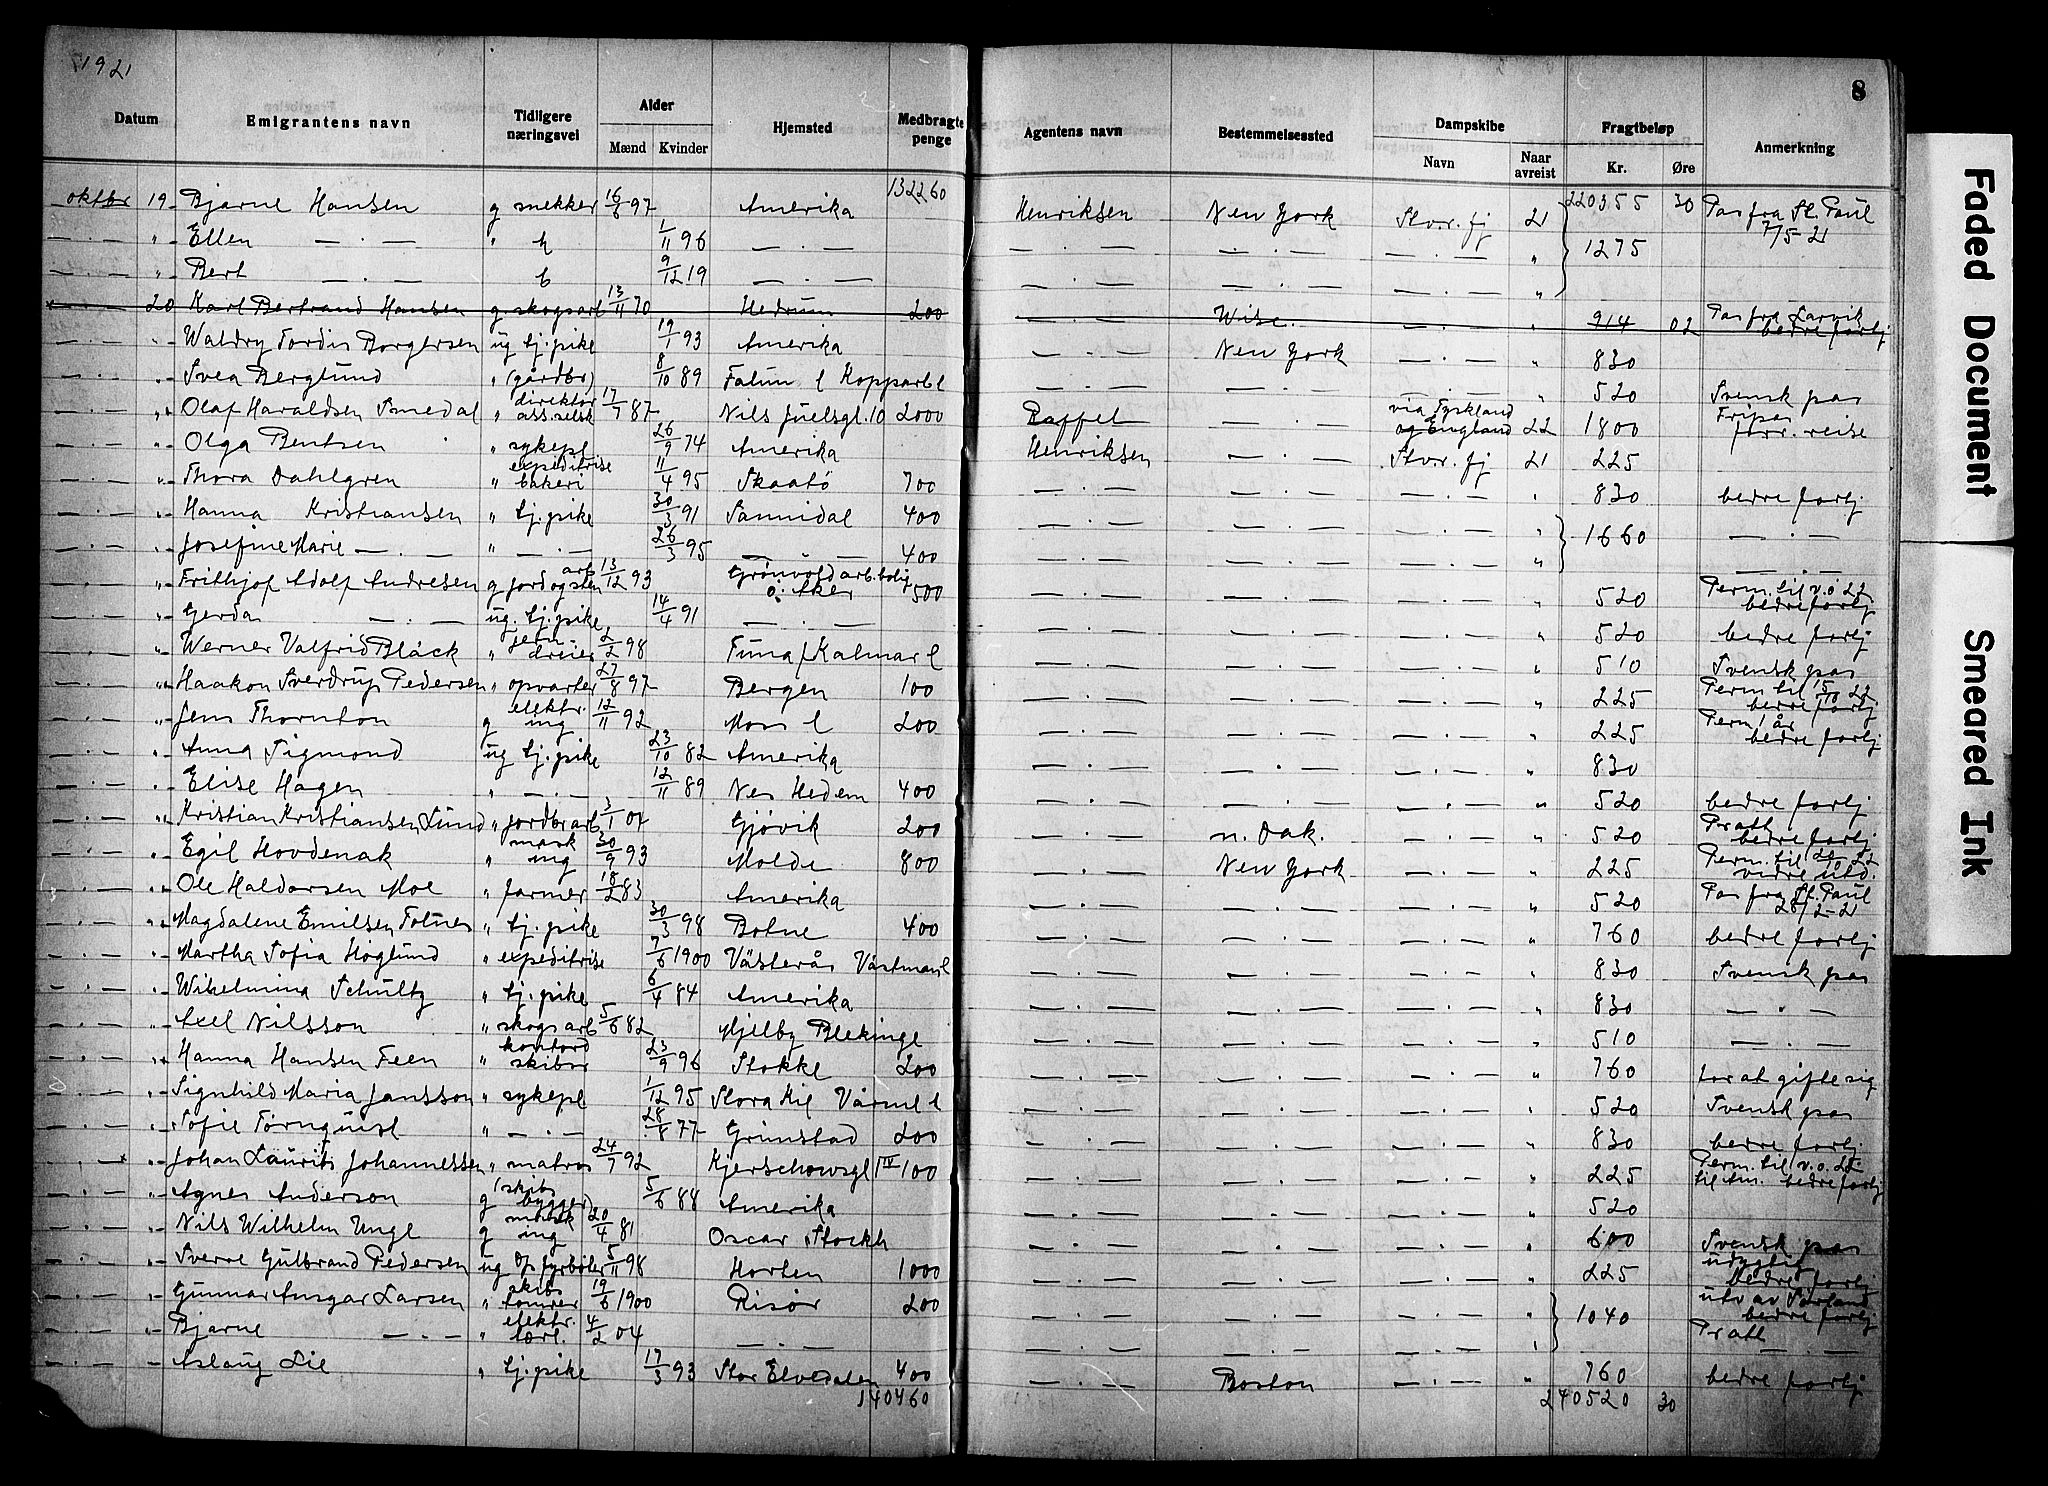 1921
8
Datum Emigrantens navn Tidligere næringsvei Alder Mænd Kvinder Hjemsted Medbragte penge Agentens navn Bestemmelsessted Dampskibe Navn Naar avreist Fragtbeløp Kr. Øre Anmerkning
132260 220355 30
oktbr 19 Bjarne Hansen g snekker 16/6 97 Amerika Henriksen New York Stvr. fj 21 Pas fra St. Paul 7/5-21
— . — " Ellen — . — " h 1/11 96 — . — — . — — . — — . — " 1275
— . — " Bert — . — b 9/12 19 — . — — . — — . — — . — "
20 Karl Bertrand Hansen g. skogsarb 13/11 70 Hedrum 200 — — Wisc. — . — " 914 02 Pas fra Larvik bedre forhj
— . — " Waldry Tordis Borgersen ug tj. pike 19/1 93 Amerika — . — New York — . — " 830
— . — " Svea Berglund " (gårdbr) 8/10 89 Falun l Kopparb l — . — — . — — . — " 520 Svensk pas
— . — " Olaf Haraldsen Smedal " direktør ass.selsk 17/7 87 Nils Juelsgt. 10 2000 Raffel — . — via Tyskland og England 22 1800 Fripas forr. reise
— . — " Olga Bentsen " sykepl 26/9 74 Amerika Henriksen — . — Stvr. fj 21 225
— . — " Thora Dahlgren " expeditrise bakeri 11/4 95 Skaatø 700 — . — — . — — . — " 830 bedre forhj
— . — " Hanna Kristiansen " tj. pike 30/3 91 Sannidal 400 — . — — . — — . — " 1660 — . —
— . — " Josefine Marie — . — " — . — 26/3 95 — . — 400 — . — — . — — . — " — . —
— . — " Frithjof Adolf Andresen g jord og sten arb 13/12 93 Grønvold arb.bolig ø. Aker 500 — . — — . — — . — " 520 Perm. til v.o 22 bedre forhj
— . — " Gerda — . — ug. tj. pike 14/4 91 — . — — . — — . — — . — " 520 bedre forhj
— . — " Werner Valfrid Bläck " jern dreier 2/2 98 Kalmar l — . — — . — — . — " 510 Svensk pas
— . — " Haakon Sverdrup Pedersen " opvarter 27/8 97 Bergen 100 — . — — . — — . — " 225 Perm til 15/10 22 bedre forhj
— . — " Jens Thornton g elektr. ing 12/11 92 Moss l 200 — . — — . — — . — " 225 Perm 1 år bedre forhj
— . — " Anna Sigmond ug tj. pike 23/10 82 Amerika — . — — . — — . — " 830
— . — " Elise Hagen " — . — 12/11 89 Nes Hedem 400 — . — — . — — . — " 520 bedre forhj
— . — " Kristian Kristiansen Lund " jordbr arb 3/1 04 Gjøvik 200 — . — n. Dak. — . — " 520 Pratt bedre forhj
— . — " Egil Hovdenak " mask ing 30/9 93 Molde 800 — . — New York — . — " 225 Perm. til 22 vidre utd.
— . — " Ole Haldorsen Moe " farmer 18/2 83 Amerika — . — — . — — . — " 520 Pas fra St. Paul 28/2-21
— . — " Magdalene Emilsen Folnes " tj. pike 30/3 98 Botne 400 — . — — . — — . — " 760 bedre forhj
— . — " Martha Sofia Höglund " expeditrise 7/6 1900 Västerås Västmanl — . — — . — — . — " 830 Svensk pas
— . — " Wilhelmina Schultz " tj. pike 6/4 84 Amerika — . — — . — — . — " 830 — " —
— . — " Axel Nilsson " skogsarb 5/6 82 Mjellby Blekinge — . — — . — — . — " 510 — . —
— . — " Hanna Hansen Feen " kontord skibsr 23/9 96 Stokke 200 — . — — . — — . — " 760 for at gifte sig
— . — " Signhild Maria Jansson " sykepl 1/12 95 Stora Kil Värml l — . — — . — — . — " 520 Svensk pas
— . — " Sofie Törnquist " — . — 28/8 77 Grimstad 200 — . — — . — — . — " 830 bedre forhj
— . — " Johan Laurits Johannessen " matros 24/7 92 Kjerschowsgt 1 IV 100 — . — — . — — . — " 225 Perm. til v.o. 22 til Am. bedre forhj
— . — " Agnes Anderson g (skibsbygger) 5/6 84 Amerika — . — — . — — . — " 520
— . — " Nils Wilhelm Unge g mask ing 20/4 81 Oscar Stockh — . — — . — — . — " 600 Svensk pas
— . — " Sverre Gulbrand Pedersen ug op fyrbøter 5/11 98 Horten 1000 — . — — . — — . — " 225 udygtig bedre forhj
— . — " Gunnar Ansgar Larsen " skibs tømrer 19/6 1900 Risør 200 — . — — . — — . — " 1040 utv av Sørland bedre forhj
— . — " Bjarne — . — " elektr. lærl. 4/2 04 — . — — . — — . — — . — " Pratt — . —
— . — " Aslaug Lie " tj. pike 17/3 93 Stor Elvedalen 400 — . — Boston — . — " 760 bedre forhj
140460 240520 30
Faded Document
Smeared Ink